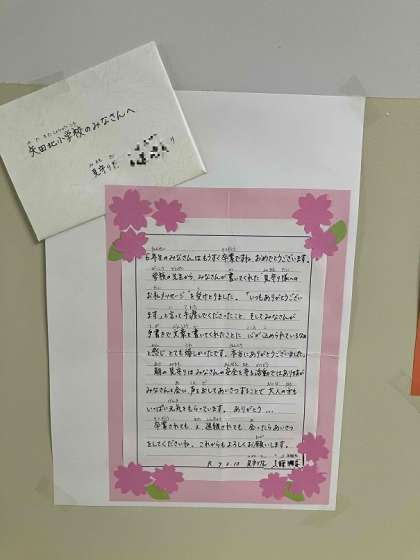 矢田北小学校のみなさんへ
見守り隊
より
6年生のみなさんはもうすぐ卒業ですね。おめでとうございます。
学校の先生から、みなさんが書いてくれた 見守り隊への
お礼メッセージを受けとりました。"いつもありがとうござい
ます"と言って手渡してくださったこと、そしてみなさんが
手書きで文章を書いてくれたことに 心が込められているなぁ
と感じ とても嬉しかったです。本当にありがとうございました。
朝の見守りはみなさんの安全を守る活動ではありますが
みなさんと会い、声を出してあいさつすることで 大人の方も
いっぱい元気をもらっています。 ありがとう…
卒業されても、進級されても 会ったらあいさつ
をしてくださいね。これからもよろしくお願いします。
R 7. 2. 10 見守り隊